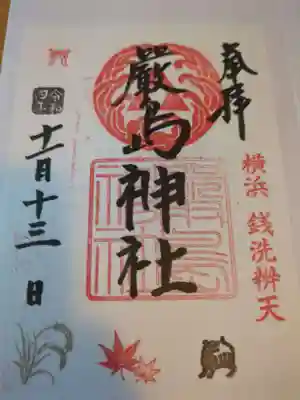 奉拝
横浜 銭洗辨天
嚴島神社
令和
十一月十三日